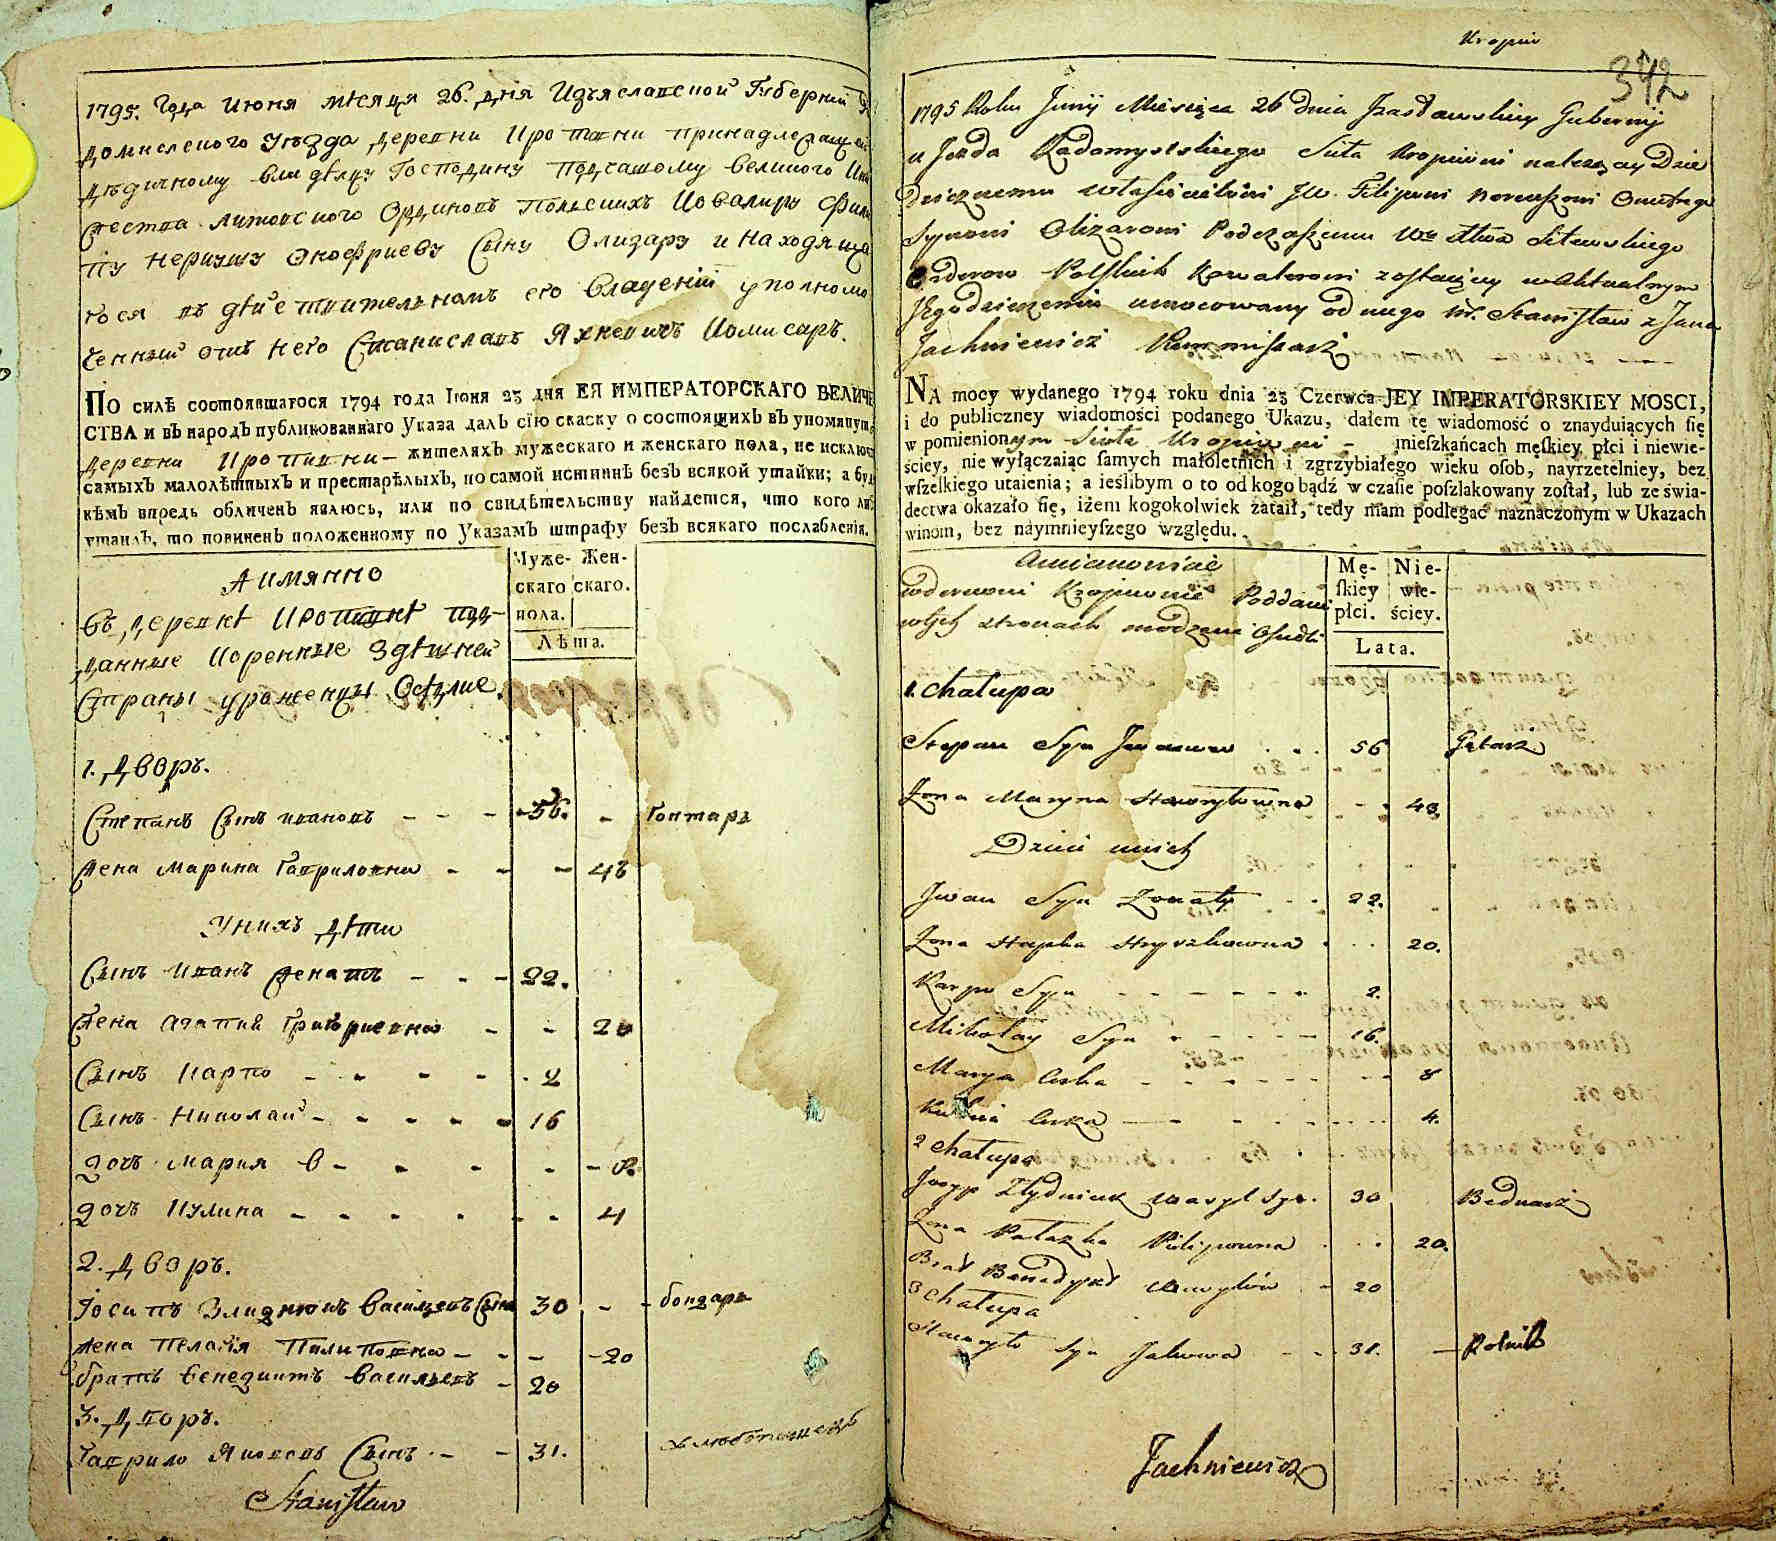 1795. Года Июня мѣсяца 26. дня Изъяславской Губерніи
домисльского уѣзда деревни Кропивни принадлежащей
дѣдичному владѣлцу Господину Подчашому великого Кня
жества Литовского Ординовъ Польскихъ Ковалиру Фили
пу Нериушу Онофриеву Сыну Олизару и находяща
гося въ дѣйствительномъ его владеніи уполномо
ченный отъ него Станиславъ Яхневичъ Комисаръ.
ПО силѣ состоявшагося 1794 года Іюня 23 дня ЕЯ ИМПЕРАТОРСКАГО ВЕЛИЧЕ
СТВА и въ народъ публикованнаго Указа далъ сїю скаску о состоящихъ въ упомянут
деревни Кропивни – жителяхъ мужескаго и женскаго пола, не исключ
самыхъ малолѣтныхъ и престарѣлыхъ, по самой истиннѣ безъ всякой утайки; а бу
кѣмъ впредь обличенъ явлюсь, или по свидѣтельству найдется, что кого ли
утаилъ, то повиненъ положенному по Указамъ штрафу безъ всякаго послабленія.
Муже- Жен-
скаго скаго.
пола.
Лѣта.
А имянно
въ деревнѣ Кропивнѣ под-
данные Коренные Здѣшней
Страны уроженцы Осѣдлие.
1. Дворъ.
Степанъ Сынъ ивановъ - - - 56. - Гонтаръ
жена Марина Гавриловна - - - 48
У нихъ дѣти
Сынъ Иванъ женатъ - - - 22.
жена Агапия Григориевна - - 20
Сынъ Карпо - - - - . 2
Сынъ Николай - - - - - 16
дочъ Мария 8 - - - - - 8.
дочъ Кулина - - - - - - 4
2. Дворъ.
Іосипъ Злиднюкъ Васильевъ Сынъ 30 - - бондаръ
жена Пелагія Пилиповна - - - -20
братъ Бенедиктъ Васильевъ - 20
3. Дворъ.
Гаврило Яковевъ Сынъ - - 31. хлюбопашецъ
Stanisław
Kropiw
342
1795 Roku Junij Miesiąca 26 dnia Jzasławskiey Gubernij
u Jezda Radomyslskiego Sioła Kropiwni należący Dzie
dzicznemu własicielowi JW. Filipowi Nereuszowi Onufrego
Synowi Olizarowi Podczaszemu Wo Xtwa Litewskiego
Orderow Polskich Kawalerowi zostaiący w Aktualnym
Jego dziedzeniu umocowany od niego W. Stanisław z Jana
Jachniewicz Kommissarz
NA mocy wydanego 1794 roku dnia 23 Czerwca JEY IMPERATORSKIEY MOSCI,
i do publiczney wiadomości podanego Ukazu, dałem tę wiadomość o znayduiących ſię
w pomienionym Siole Kropiwni - mieſzkańcach męſkiey płci i niewie-
ściey, nie wyłączaiąc ſamych małoletnich i zgrzybiałego wieku oſob, nayrzetelniey, bez
wſzelkiego utaienia; a ieślibym o to od kogo bądź w czaſie poſzlakowany zoſtał, lub ze świa-
dectwa okazało ſię, iżem kogokolwiek zataił, tedy mam podlegać naznaczonym w Ukazach
winom, bez naymnieyſzego względu.
Mę- Nie-
ſkiey wie-
płci. ściey.
Lata.
Amianowicie
w derewni Kropiwnie Poddani
wtych stronach urodzeni Osiedli
1. chałupa
Stepan Syn Janowa . . . 56 Gątarz
Żona Maryna Hawryłowna - . 48
Dzieci u nich
Jwan Syn Żonaty . . 22.
Żona Hapka Hryszkowna . . . 20.
Karpo Syn - - - - - - 2.
Mikołay Syn - - - - - 16.
Marya Curka - - - - - - - - 8
Kulina Curka - - - - - - - 4.
2 chałupa
Josyp Złydniuk Wasyl Syn. 30 Bednarz
Żona Pałazka Pilipowna . . . 20.
Brat Benedykt Wasylów - 20
3 chałupa
Hawryło Syn Jakowa - - . 31. — Rolnik
Jachniewicz